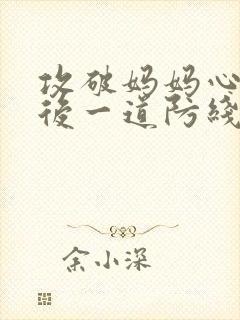 攻破妈妈心
后一道防线
余小深